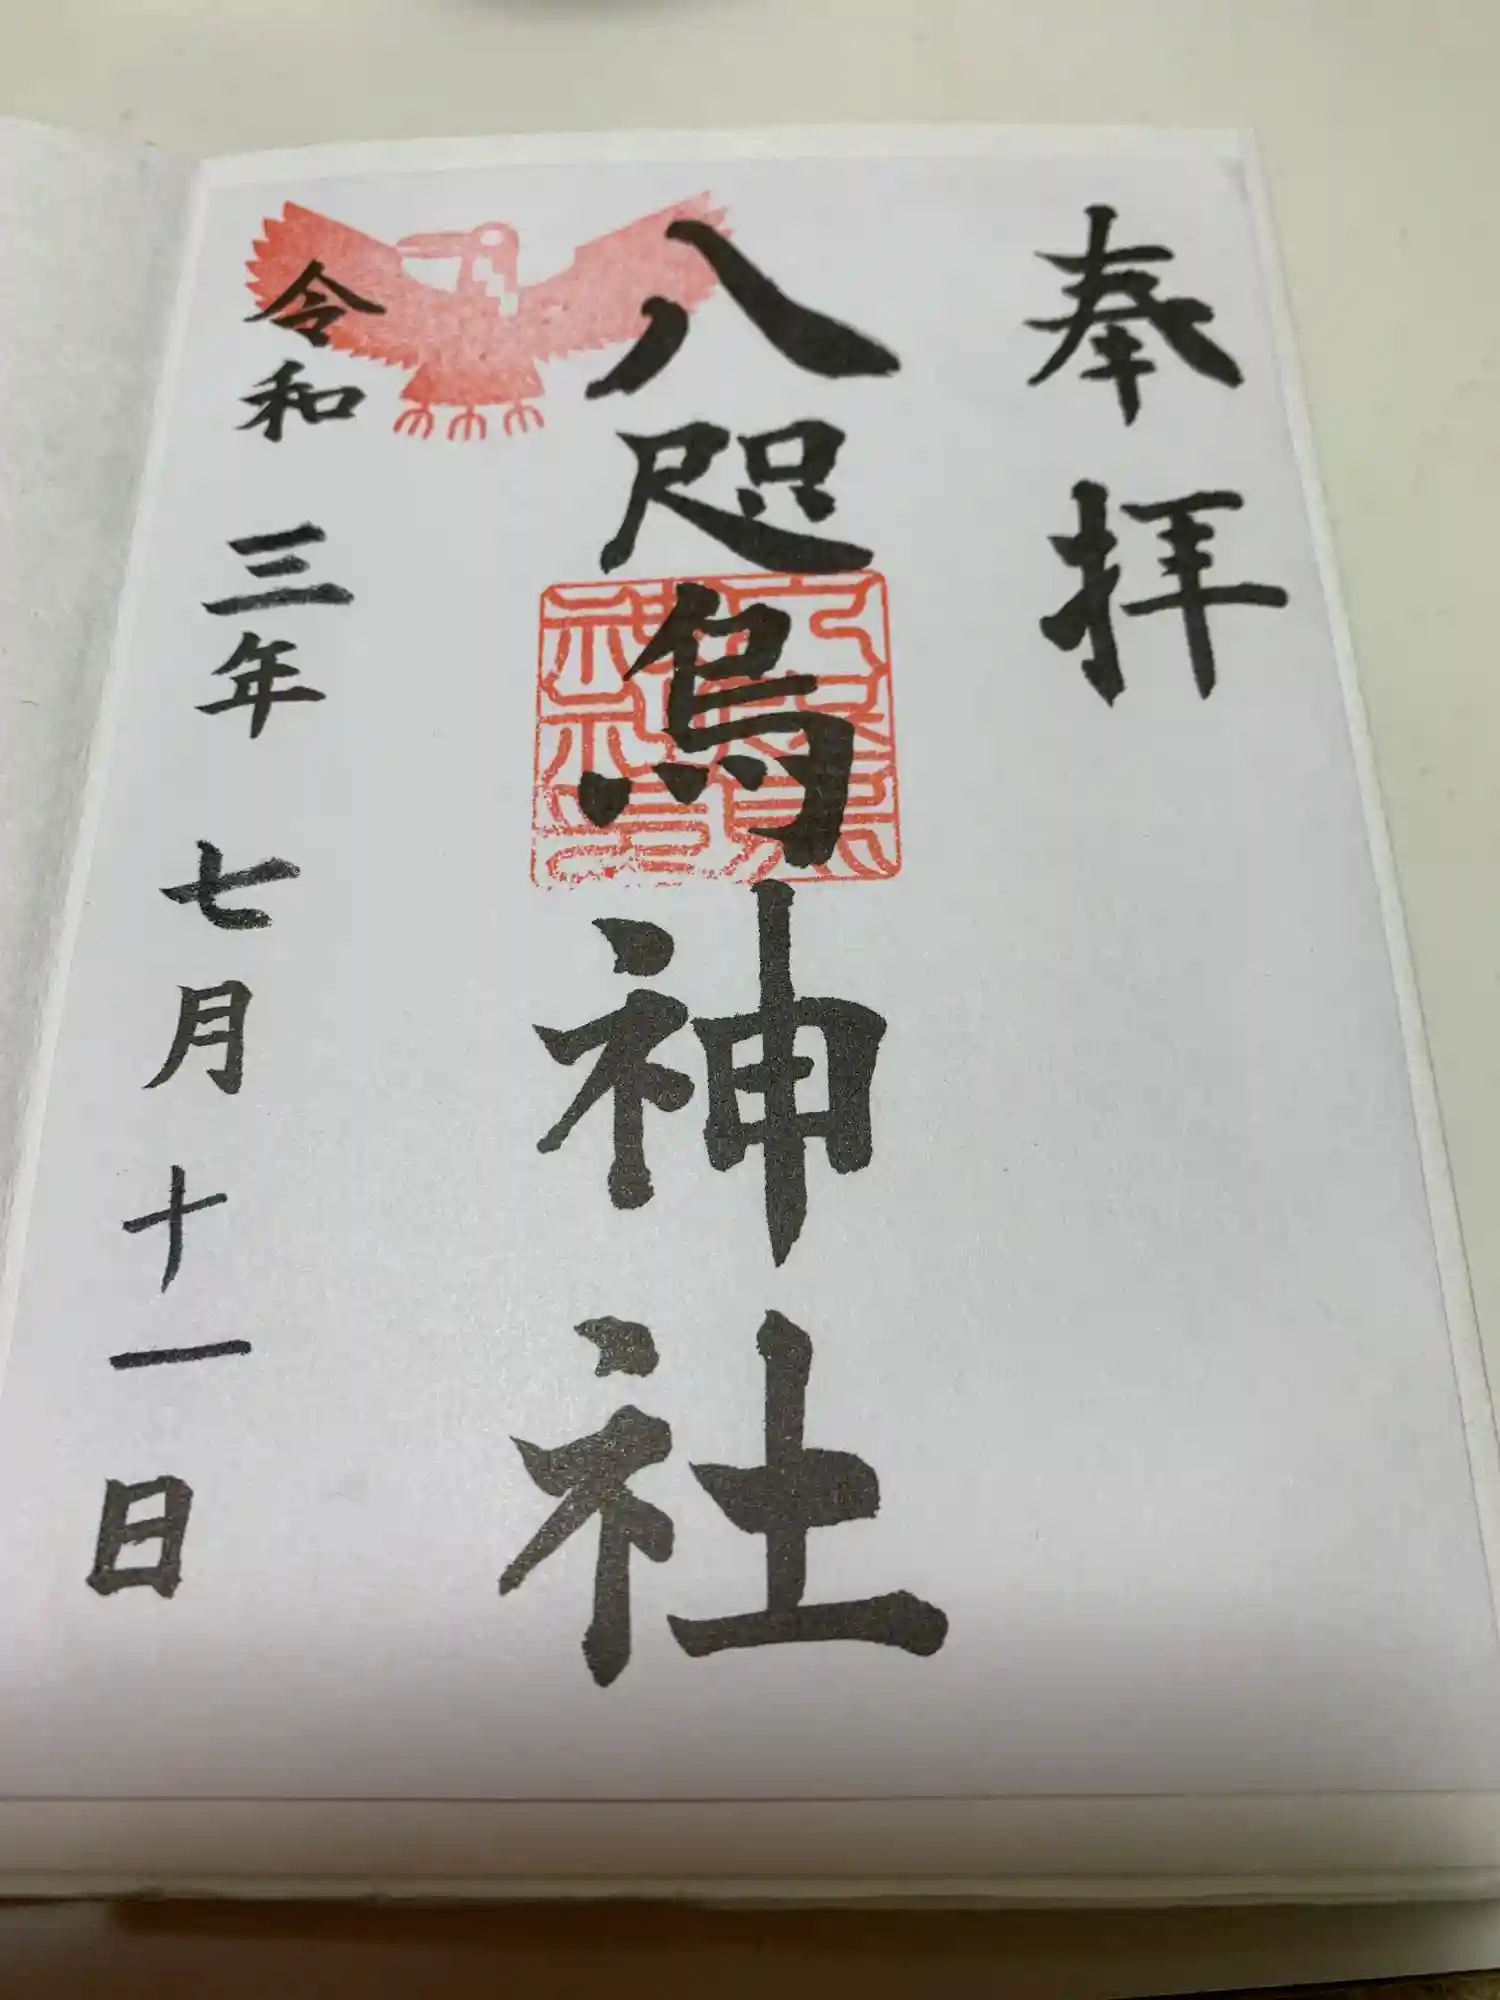 奉拝
八咫烏神社
令和三年七月十一日